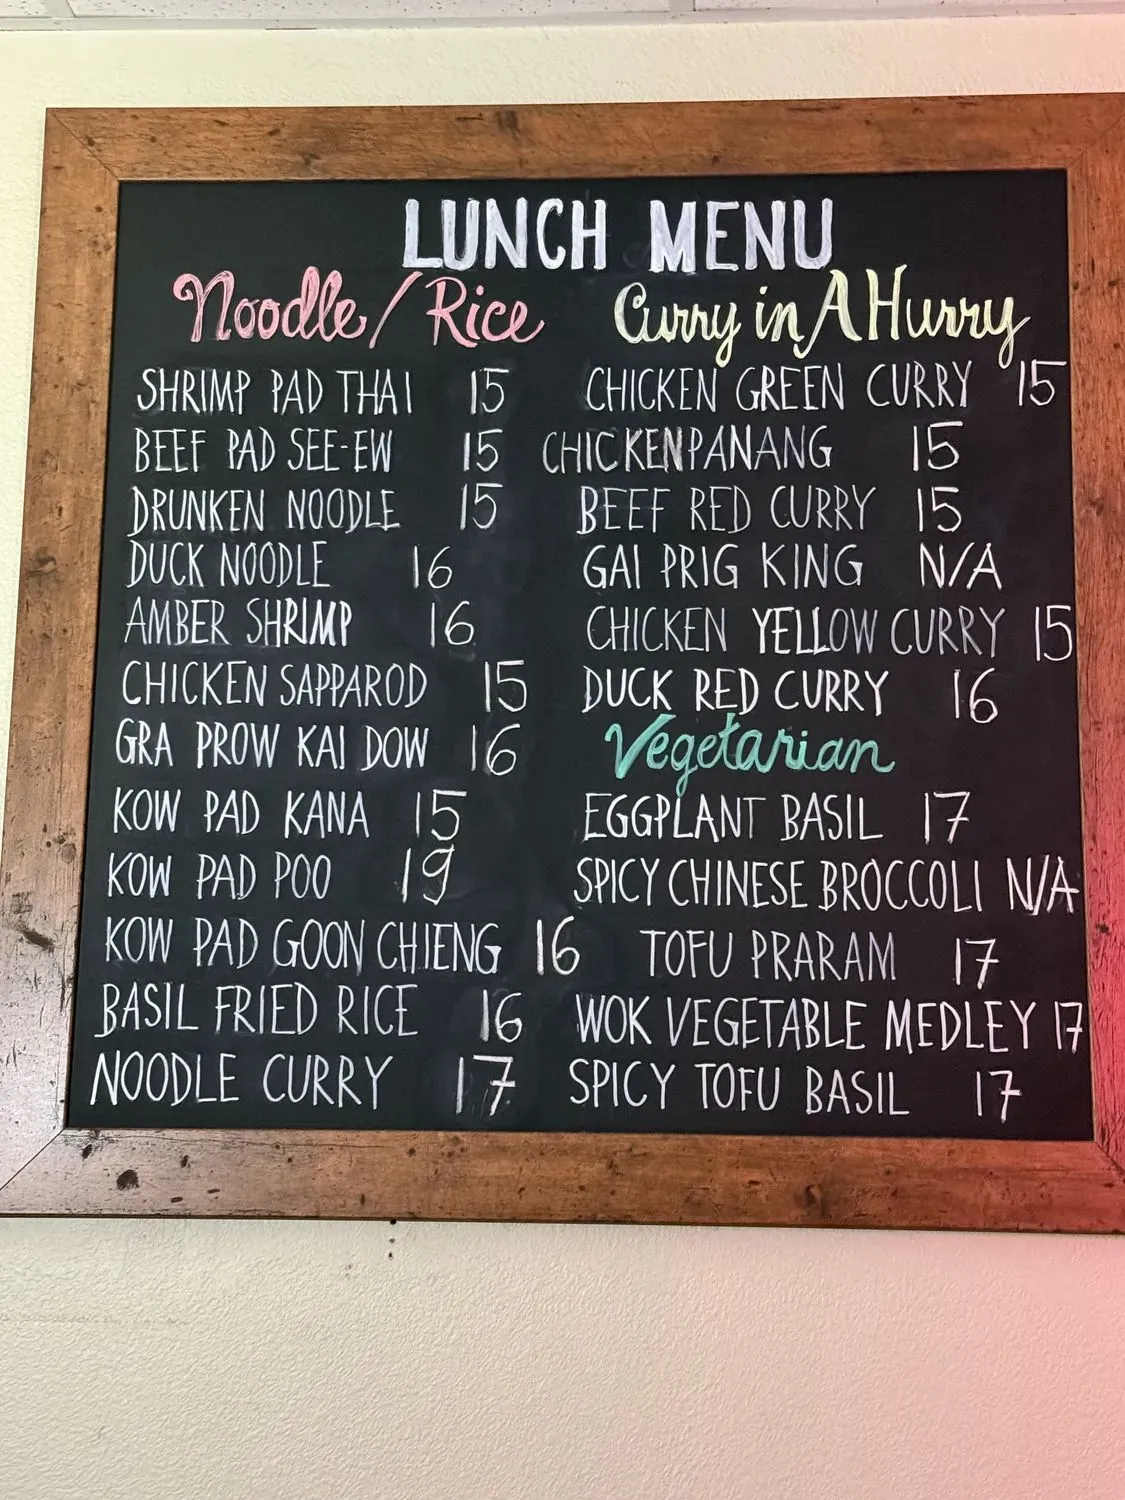 LUNCH MENU
Noodle/Rice
SHRIMP PAD THAI 15
BEEF PAD SEE-EW 15
DRUNKEN NOODLE 15
DUCK NOODLE 16
AMBER SHRIMP 16
CHICKEN SAPPAROD 15
GRA PROW KAI DOW 16
KOW PAD KANA 15
KOW PAD POO 19
KOW PAD GOON CHIENG 16
BASIL FRIED RICE 16
NOODLE CURRY 17
Curry in A Hurry
CHICKEN GREEN CURRY 15
CHICKEN PANANG 15
BEEF RED CURRY 15
GAI PRIG KING N/A
CHICKEN YELLOW CURRY 15
DUCK RED CURRY 16
Vegetarian
EGGPLANT BASIL 17
SPICY CHINESE BROCCOLI N/A
TOFU PRARAM 17
WOK VEGETABLE MEDLEY 17
SPICY TOFU BASIL 17